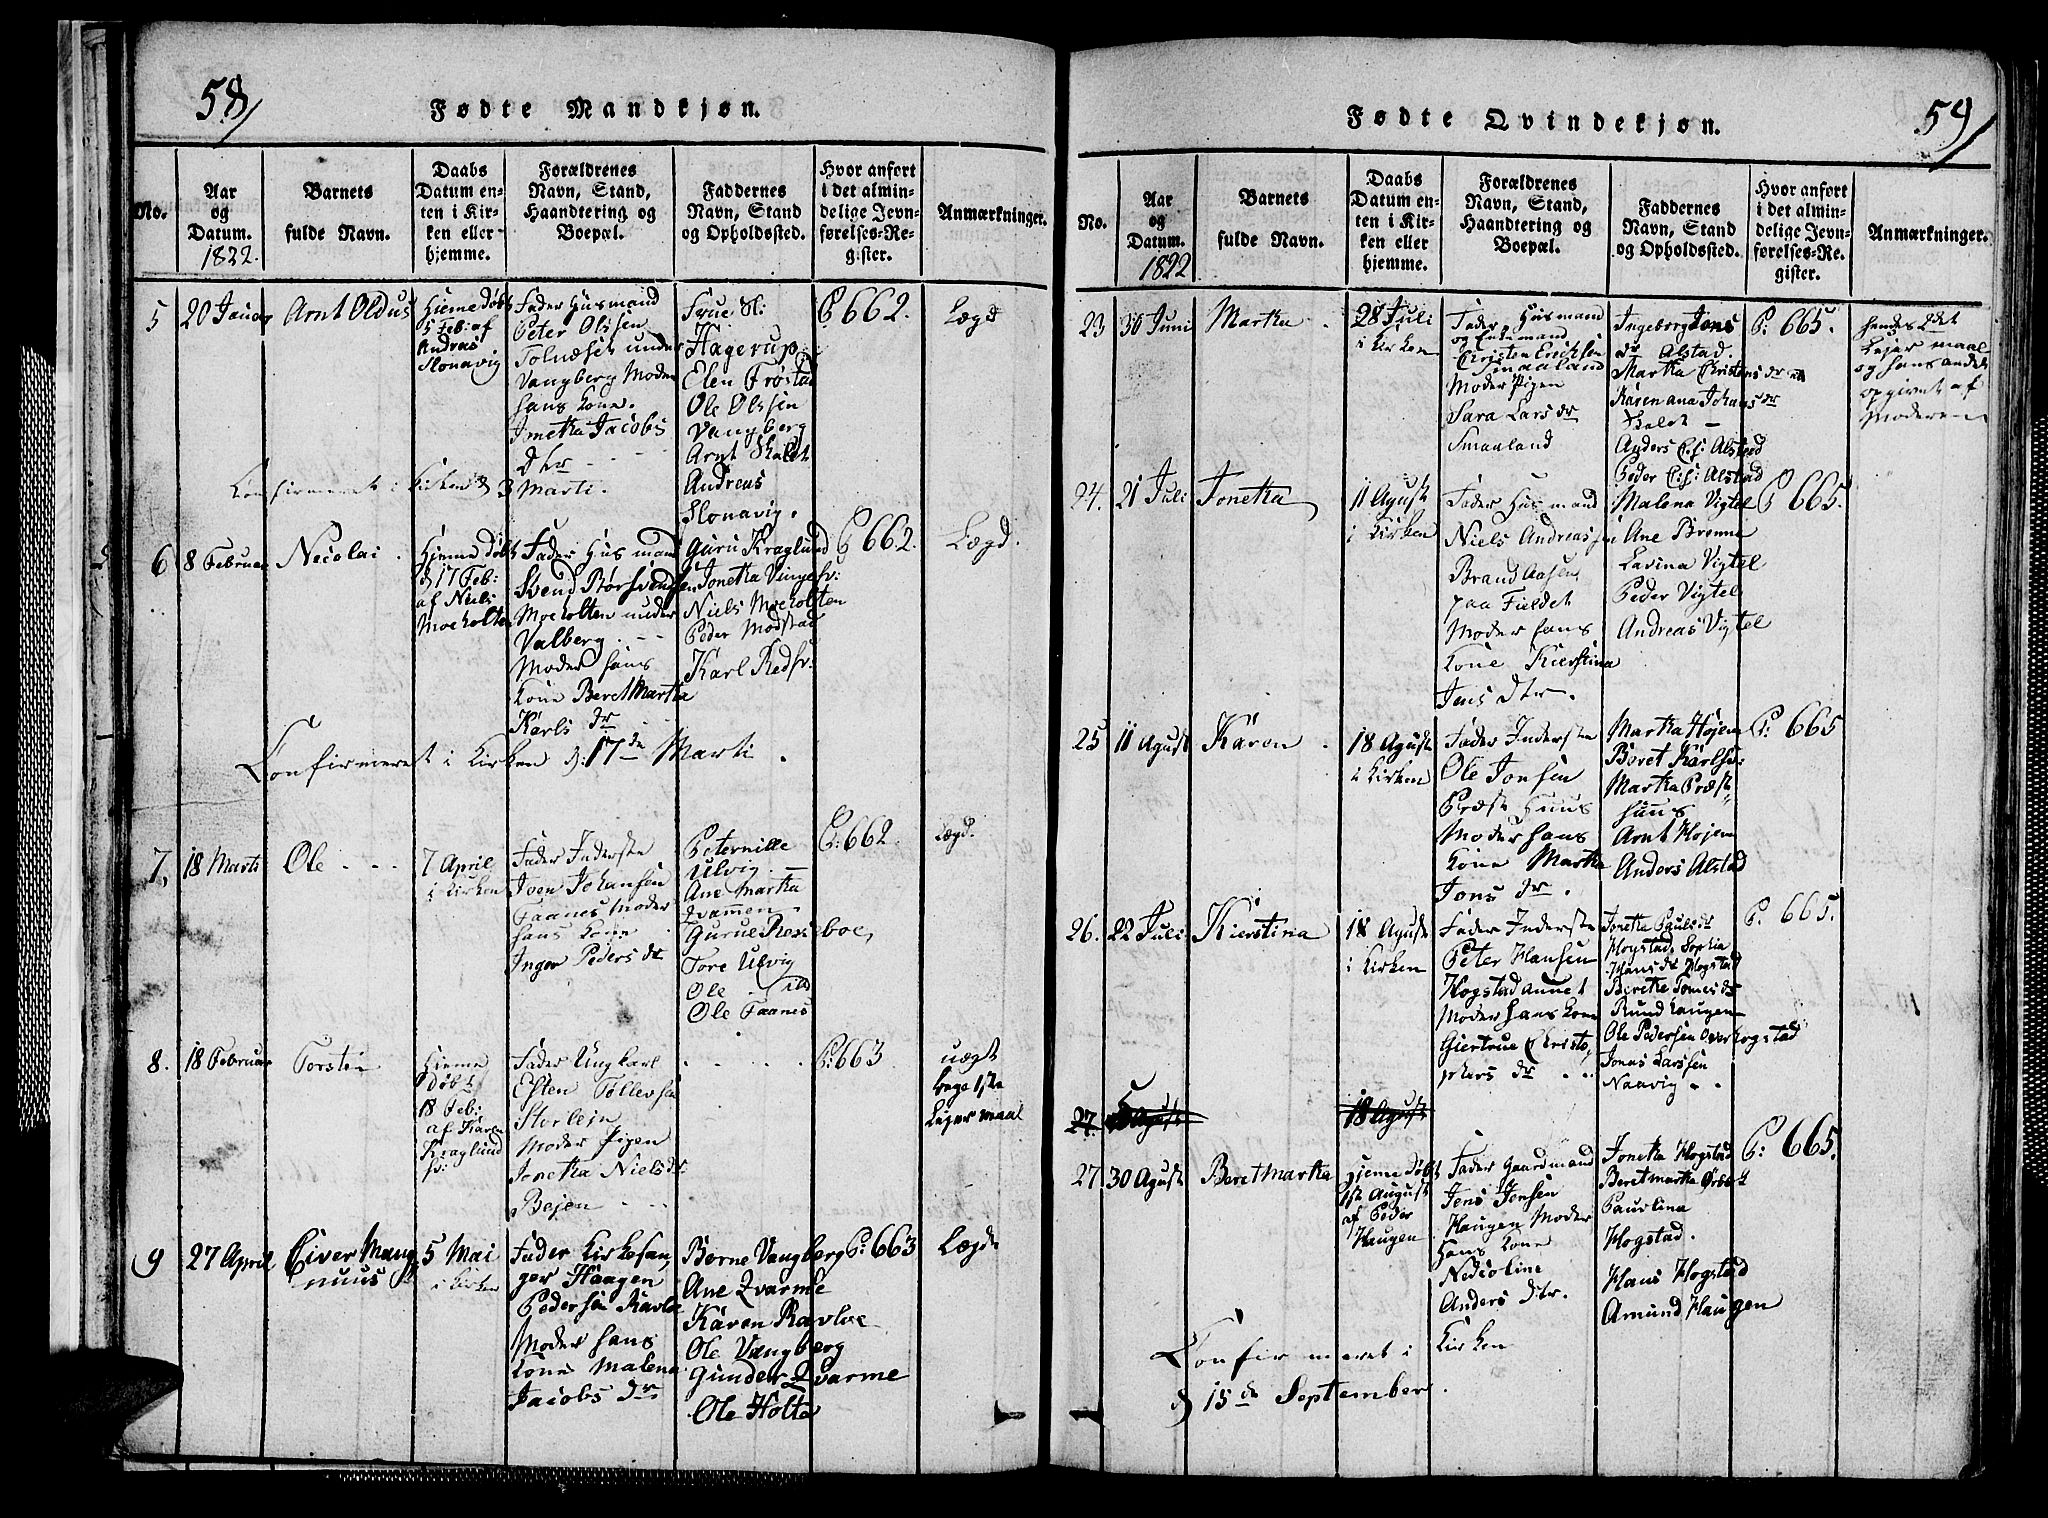 58
Fødte Mandkjøn.
No.
Aar og Datum.
1822.
Barnets fulde Navn.
Daabs Datum enten i Kirken eller hjemme.
Forældrenes Navn, Stand, Haandtering og Boepæl.
Faddernes Navn, Stand og Opholdssted.
Hvor anført i det almindelige Jevnførelses-Register.
Anmærkninger.
5
20 Januar
Arnt Oldus
Hieme Døbt
5 Feb: af
Andreas
Slonavig
Fader Husmand
Peter Olssen
Tolnæset under
Vangberg Moder
hans Kone.
Jmetha Jacobs
Dtr
Frue Sl:
Hagerup
Elen Frøstad
Ole Olssen
Vangberg
Arnt Skalet
Andreas
Slonavig.
P 662.
Lægd
Confirmeret i Kirken d 3 Marti.
6
8 Februar
Nicolai
Hieme Døbt
d 17 Feb:
af Niels
Moeholten
Fader Husmand
Svend Børsvendsen
Moeholten under
Valberg.
Moder hans
Kone Beret Martha
Karls dr
Guru Kraglund
Jonetha Vinge
Niels Moeholten
Peder Modstad
Karl Reds:
P 662.
Lægd.
Confirmeret i Kirken d: 17de Marti.
7,
18 Marti
Ole
7 April
i Kirken
Fader Inderste
Joen Johansen
Faanes Moder
hans Kone
Inger Peders dr
Peternille
Ulvig
Ane Martha
Qvammen
Gurue Resseboe,
Tore Ulvig
Ole
Ole Faanes
P: 662.
Lægd.
8.
18 Februar
Torsten
Hieme
Døbt
18 Feb:
af Karen
Kraglund
Fader Ungkarl
Esten Tollevsen
Storlein
Moder Pigen
Jonetha Niels dr
Bøjen
P: 663
uægt
Bege 1ste
Lejermaal
9
27 April
Eiver Mangnuus
5 Mai
i Kirken
Fader Kirkesanger
Haagen
Pedersen Ravloe
Moder hans
Kone Malena
Jacobs dr
Borne Vangberg
Ane Qvarme
Karen Ravloe
Ole Vangberg
Gunder Qvarme
Ole Holte
P: 663
Lægde
59
Fødte Qvindekjøn.
No.
Aar og Datum.
1822
Barnets fulde Navn.
Daabs Datum enten i Kirken eller hjemme.
Forældrenes Navn, Stand, Haandtering og Boepæl.
Faddernes Navn, Stand og Opholdssted.
Hvor anført i det almindelige Jevnførelses-Register.
Anmærkninger.
23
30 Juni
Martha
28 Juli
i Kirken
Fader Husmand
og Enkemand
Christen Ericksen
Smaaland
Moder Pigen
Sara Lars dr
Smaaland
Ingeborg Jons
dr Alstad.
Martha Christens dr
Karen ana Johans dr
Skalet
Anders Alstad
Peder Alstad
P: 665.
hendes 2det
Lejermaal
og hans andet
opgivet af
Moderen
24.
21 Juli
Jonetha
11 Agust
i Kirken
Fader Husmand
Niels Andreassen
Brandaasen
paa Fieldet
Moder hans
Kone Kierstina
Jens Dtr.
Malena Vigtel
Ane Brenne
Lavina Vigtel
Peder Vigtel
Andreas Vigtel
P 665.
25
11 Agust
Karen
18 Agust
i Kirken
Fader Inderste
Ole Jonsen
Præst Huus
Moder hans
Kone Martha
Jons dr.
Martha Højem
Beret Karls
Martha Præst
huus
Arnt Højem
Anders Alstad
P: 665
26.
22 Juli
Kierstina
18 Agust
i Kirken
Fader Inderste
Peter Hansen
Hogstad annet
Moder hans Kone
Giertrue Christophers
dr
Jonetha Pauls dr
Hogstad, Sophia
Hans dr Hogstad
Beretha Tomes dr
Rundhaugen
Ole Pedersen Overhogstad
Jonas Larssen
Naavig
P. 665.
27.
Agust
18 Agust
27
30 Agust
Beret Martha
Hjeme Døbt
1st August
af Peder
Haugen
Fader Gaardmand
Jens Jensen
Haugen Moder
Hans Kone
Nedioline
Anders dtr.
Jonetha Hogstad
Beret martha Ørbech
Paulina
Hogstad.
Hans Hogstad
Amund Haugen
P: 665.
Confirmeret i Kirken
d 15de September.